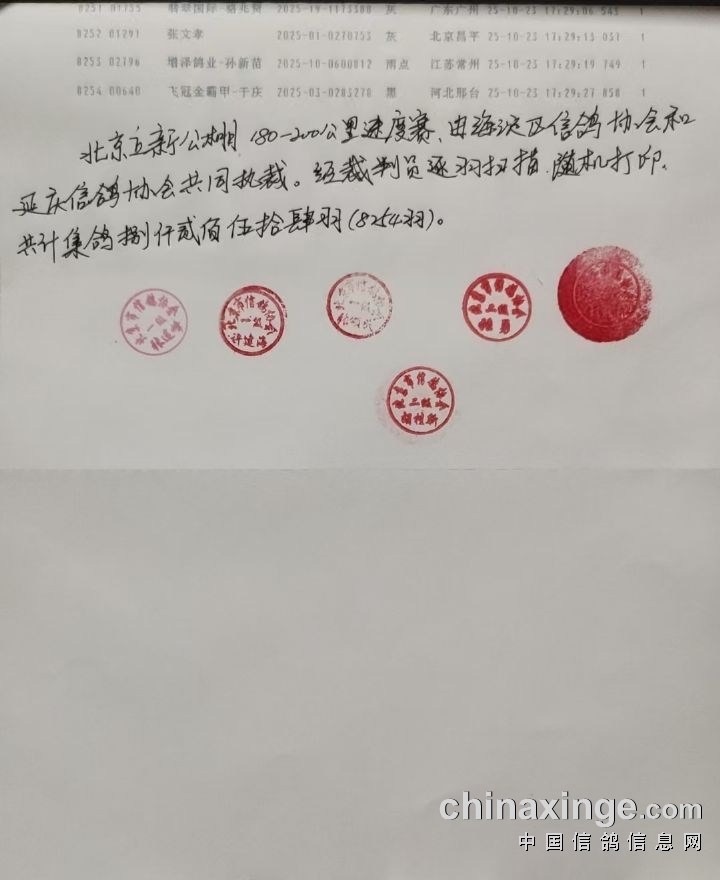 8251 01755 翡翠国际-骆兆贤 2025-19-1173388 灰 广东广州 25-10-23 17:29:06 543 1
8252 01291 张文孝 2025-01-0270753 灰 北京昌平 25-10-23 17:29:13 037 1
8253 02796 增泽鸽业-孙新苗 2025-10-0600812 雨点 江苏常州 25-10-23 17:29:19 749 1
8254 00640 飞冠金霸甲-于庆 2025-03-0283278 黑 河北邢台 25-10-23 17:29:27 858 1
北京立新公棚180-200公里速度赛,由海淀区信鸽协会和
延庆信鸽协会共同执裁。经裁判员逐羽扫描,随机打印,
共计集鸽捌仟贰佰伍拾肆羽(8254羽)。
北京市信鸽协会
一级
北京市信鸽协会
一级
许建海
北京市信鸽协会
一级
北京市信鸽协会
二级
北京市信鸽协会
三级
chinaxinge.com
中国信鸽信息网